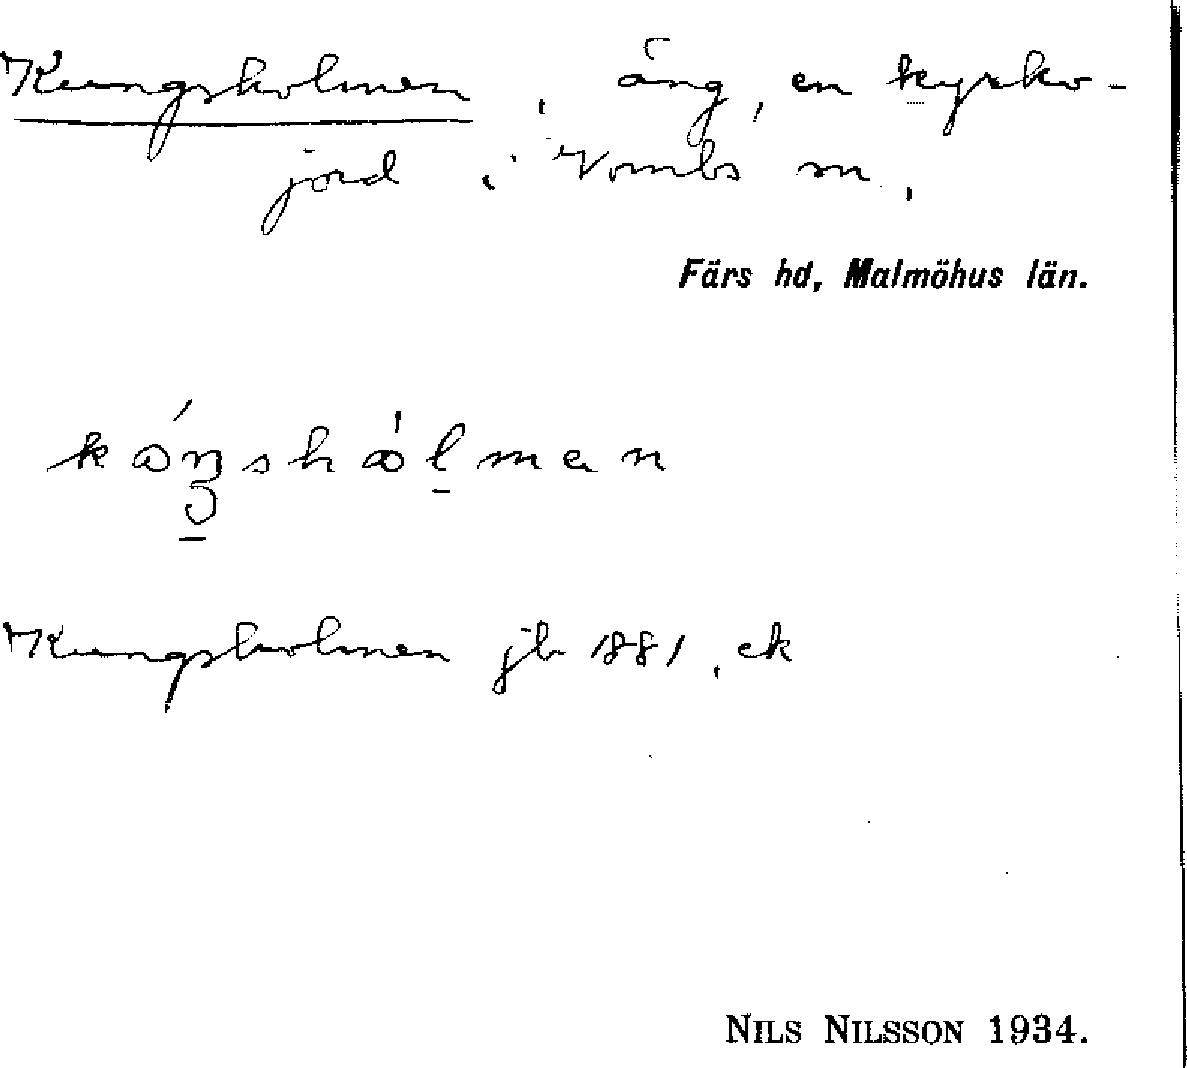 Kungsholmen, äng, en kyrko-
jord i Vombs sn.
Färs hd, Malmöhus län.
Kungsholmen jb 1881, ek
NILS NILSSON 1934.